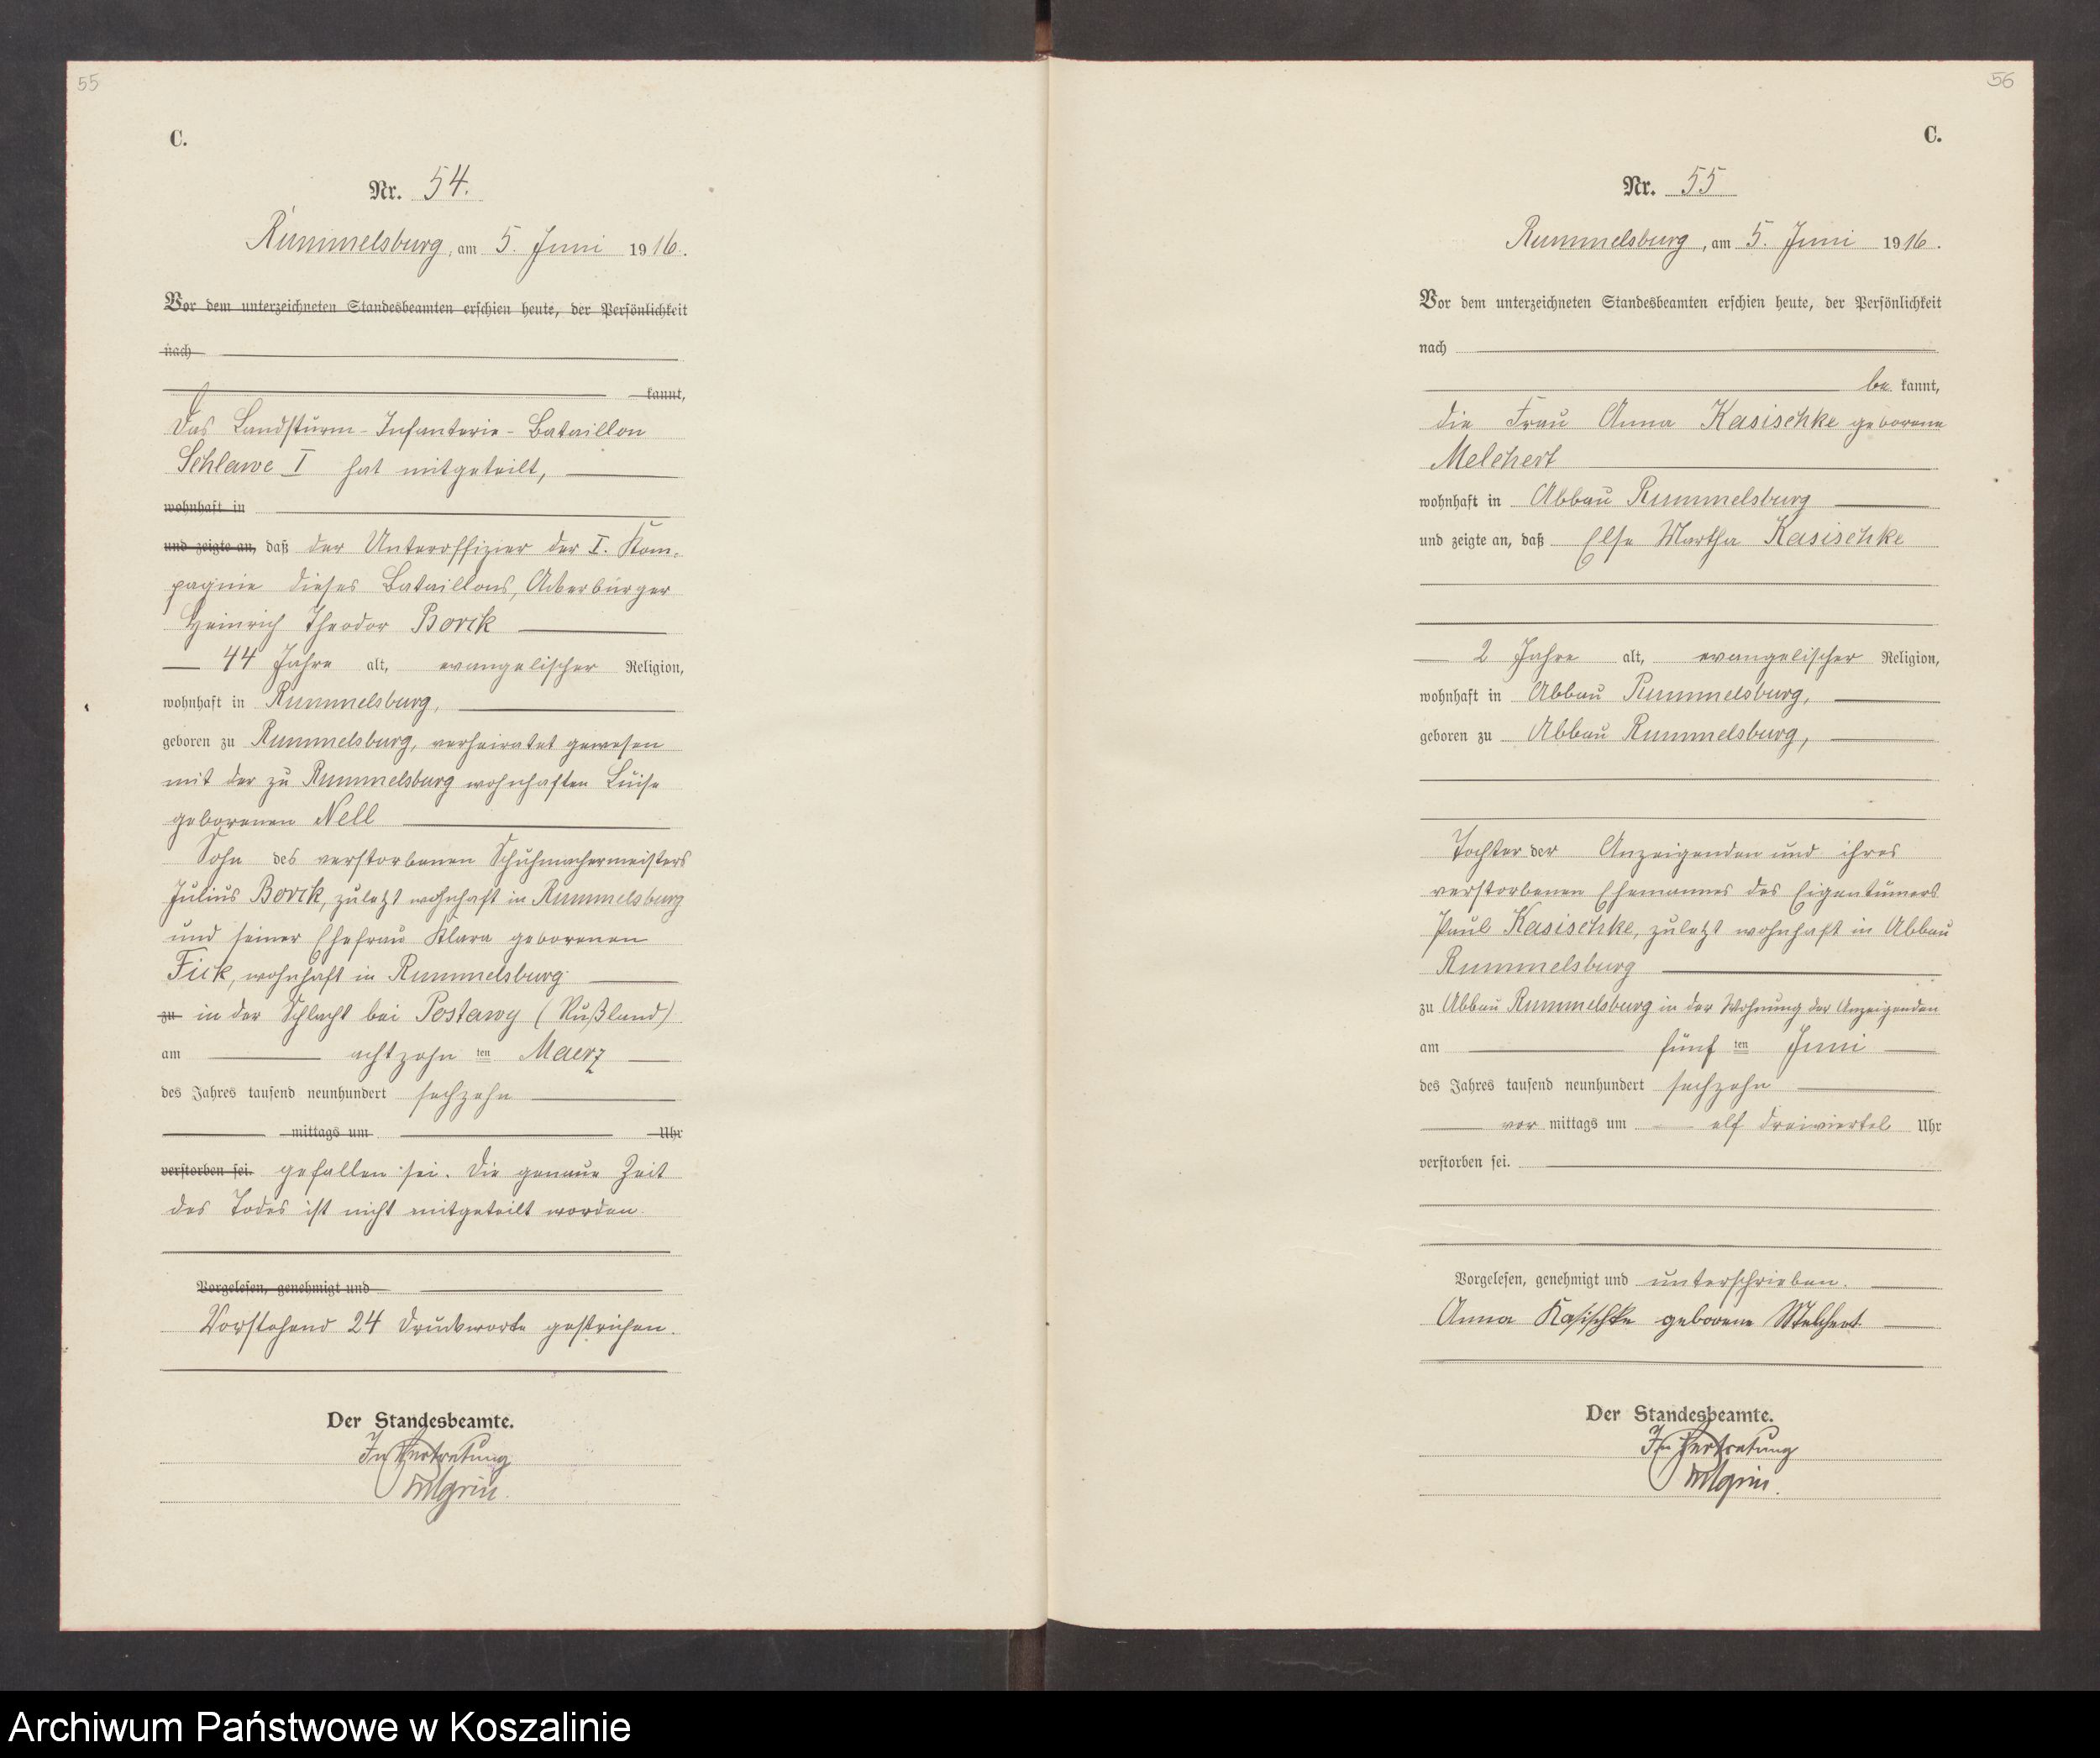 55
C.
Nr. 54.
Rummelsburg, am 5. Juni 1916.
Vor dem unterzeichneten Standesbeamten erschien heute, der Persönlichkeit
nach
kannt,
Das Landsturm-Infanterie-Bataillon
Schlawe I hat mitgeteilt,
wohnhaft in
und zeigte an, daß der Unteroffizier der I. Kom-
pagnie dieses Bataillons, Ackerbürger
Heinrich Theodor Borck
44 Jahre alt, evangelischer Religion,
wohnhaft in Rummelsburg,
geboren zu Rummelsburg, verheiratet gewesen
mit der zu Rummelsburg wohnhaften Luise
geborenen Nell
Sohn des verstorbenen Schuhmachermeisters
Julius Borck, zuletzt wohnhaft in Rummelsburg
und seiner Ehefrau Klara geborenen
Fick, wohnhaft in Rummelsburg
zu in der Schlacht bei Postawy (Rußland)
am achtzehn ten Maerz
des Jahres tausend neunhundert sechzehn
mittags um Uhr
verstorben sei. gefallen sei. Die genaue Zeit
des Todes ist nicht mitgeteilt worden.
Vorgelesen, genehmigt und
Vorstehend 24 Druckworte gestrichen.
Der Standesbeamte.
In Vertretung
56
C.
Nr. 55
Rummelsburg, am 5. Juni 1916.
Vor dem unterzeichneten Standesbeamten erschien heute, der Persönlichkeit
nach
be kannt,
die Frau Anna Kasischke geborene
Melchert
wohnhaft in Abbau Rummelsburg
und zeigte an, daß Else Martha Kasischke
2 Jahre alt, evangelischer Religion,
wohnhaft in Abbau Rummelsburg,
geboren zu Abbau Rummelsburg,
Tochter der Anzeigenden und ihres
verstorbenen Ehemannes des Eigentümers
Paul Kasischke, zuletzt wohnhaft in Abbau
Rummelsburg
zu Abbau Rummelsburg in der Wohnung der Anzeigenden
am fünf ten Juni
des Jahres tausend neunhundert sechzehn
vor mittags um elf dreiviertel Uhr
verstorben sei.
Vorgelesen, genehmigt und unterschrieben.
Anna Kasischke geborene Melchert
Der Standesbeamte.
In Vertretung
Archiwum Państwowe w Koszalinie